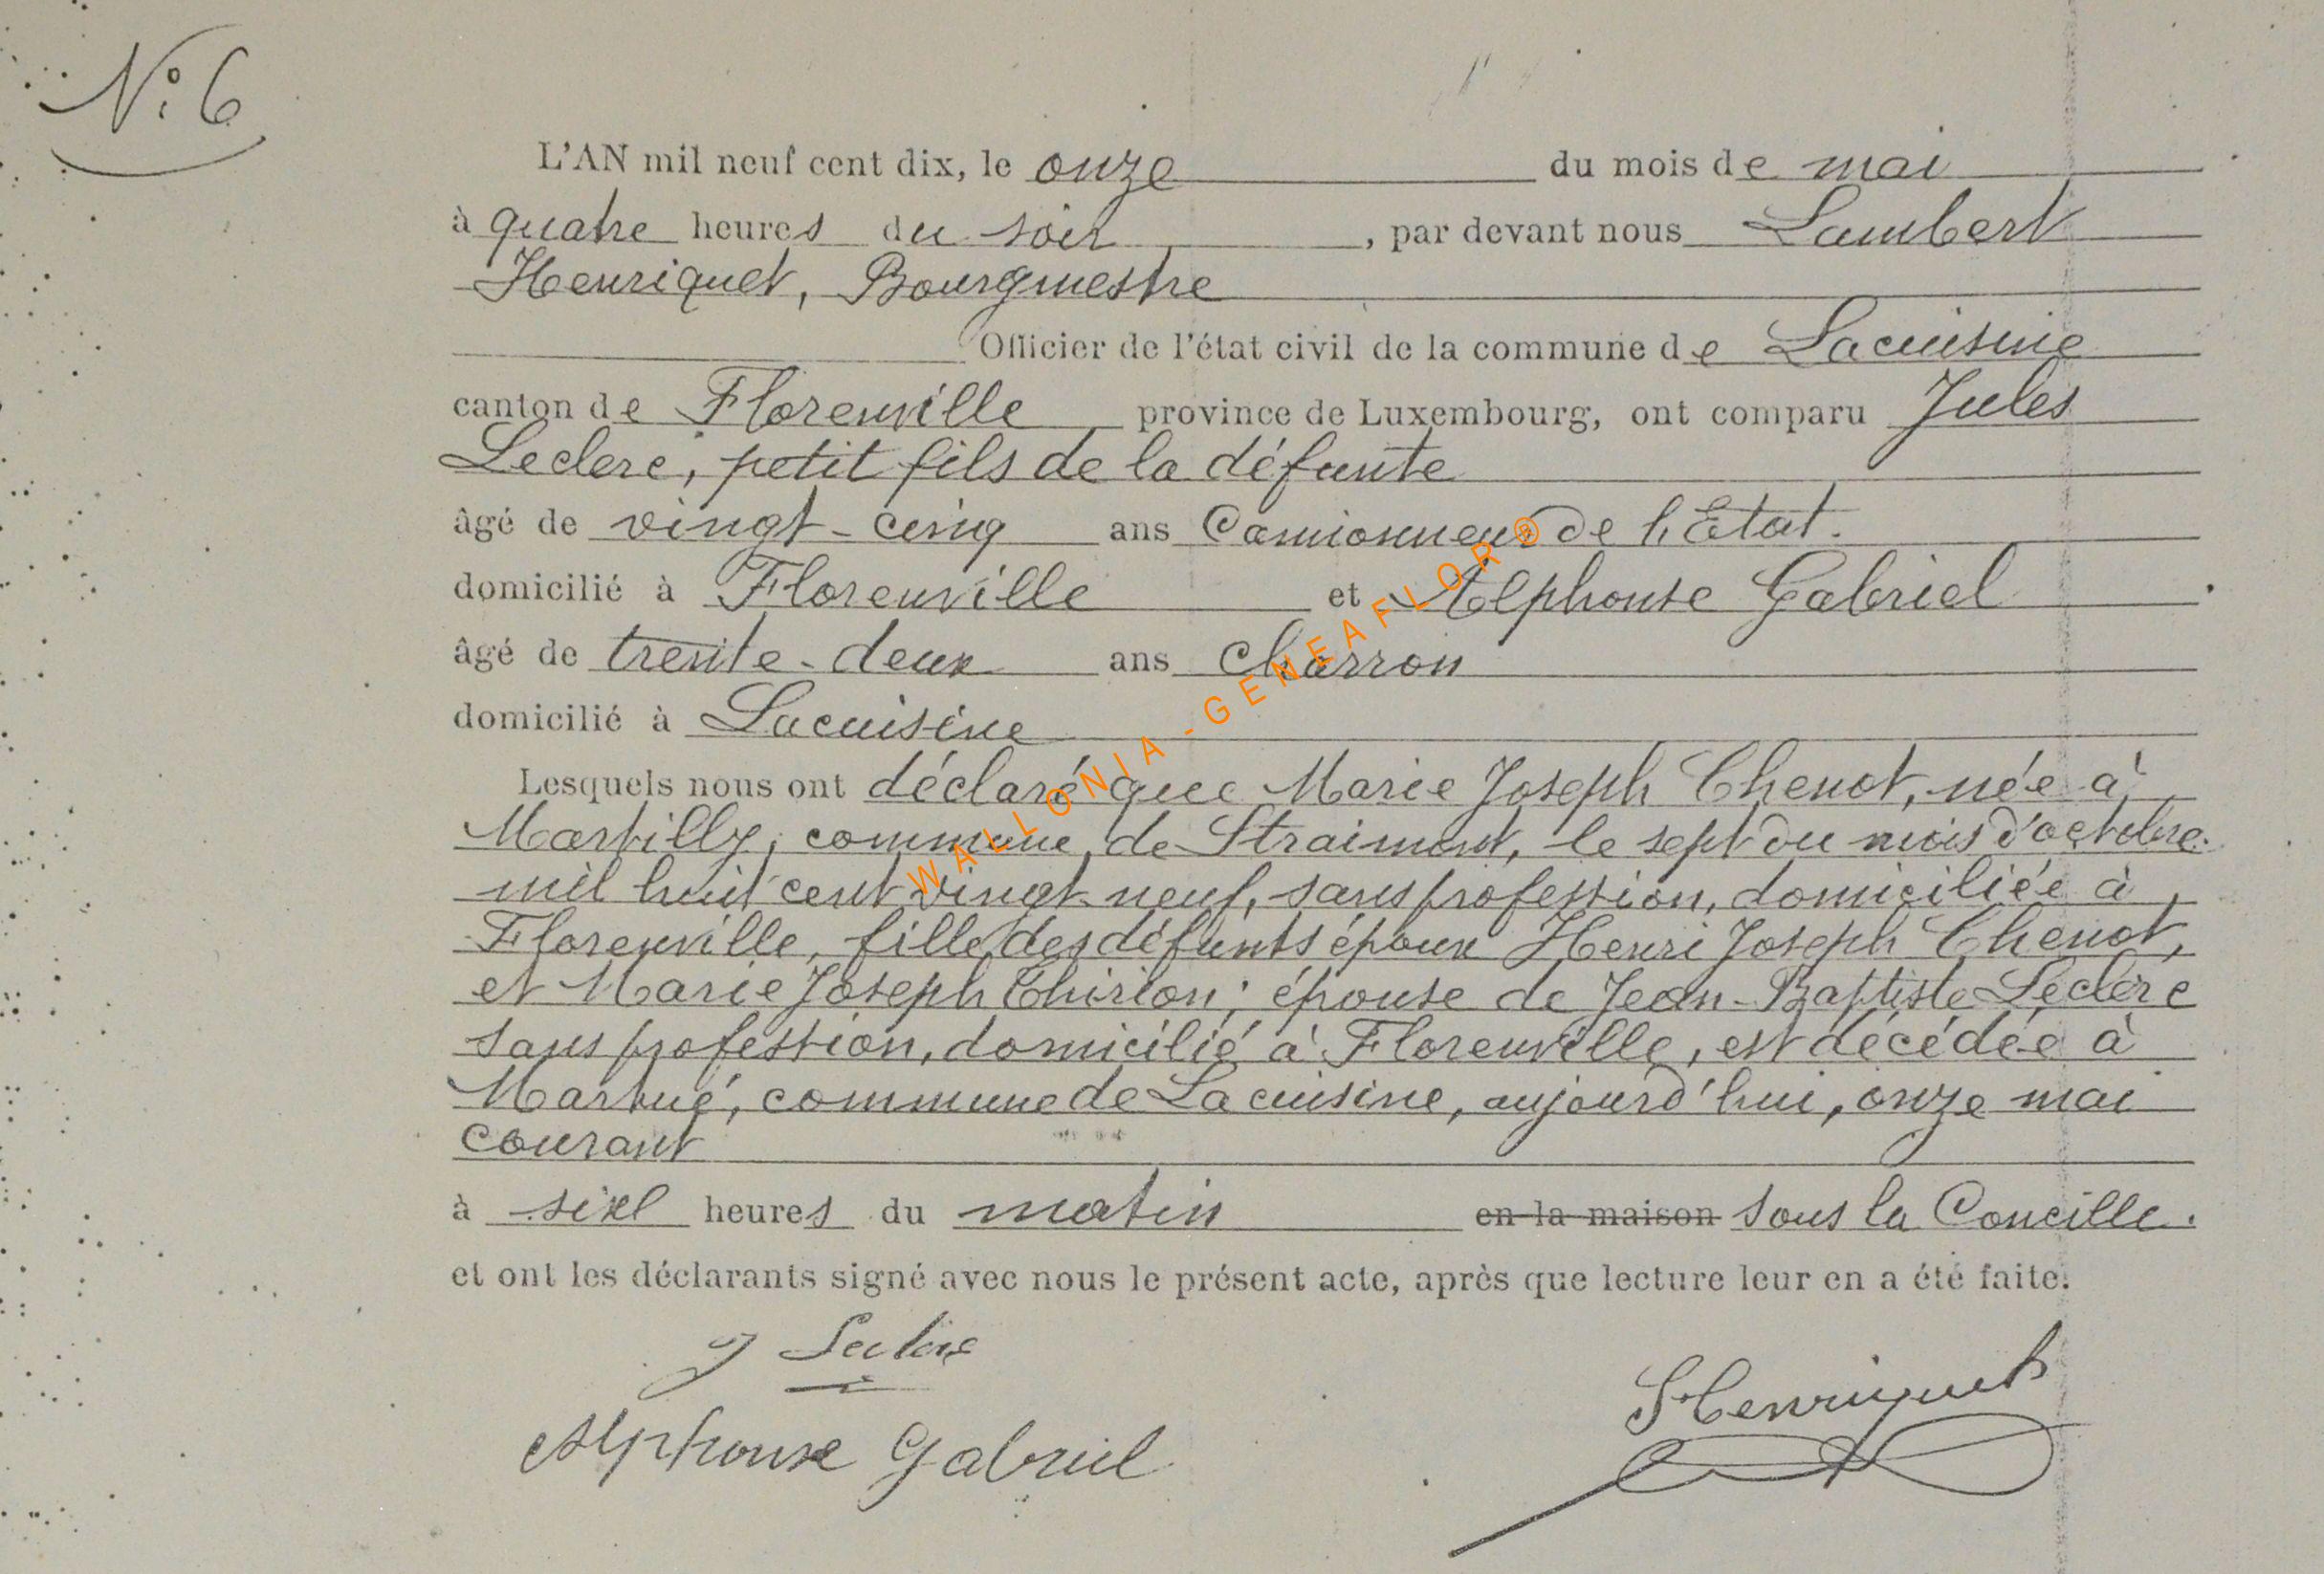 N° 6
L'AN mil neuf cent dix, le onze du mois de mai
à quatre heures du soir, par devant nous Lambert
Henriquet, Bourgmestre
Officier de l'état civil de la commune de Lacuisine
canton de Florenville province de Luxembourg, ont comparu Jules
Leclerc, petit fils de la défunte
âgé de vingt-cinq ans Camionneur de l'Etat.
domicilié à Florenville et Alphonse Gabriel
âgé de trente-deux ans Charron
domicilié à Lacuisine
Lesquels nous ont déclaré que Marie Joseph Chenot, née à
Martilly, commune de Straimont, le sept du mois d'octobre
mil huit cent vingt neuf, sans profession, domiciliée à
Florenville, fille des défunts époux Henri Joseph Chenot,
et Marie Joseph Thirion; épouse de Jean-Baptiste Leclerc
sans profession, domicilié à Florenville, est décédée à
Martué, commune de Lacuisine, aujourd'hui, onze mai
courant
à six heures du matin en la maison sous la Concille.
et ont les déclarants signé avec nous le présent acte, après que lecture leur en a été faite.
J Leclerc
LHenriquet
Alphonse Gabriel
WALLONIA - GENEAFLOR®